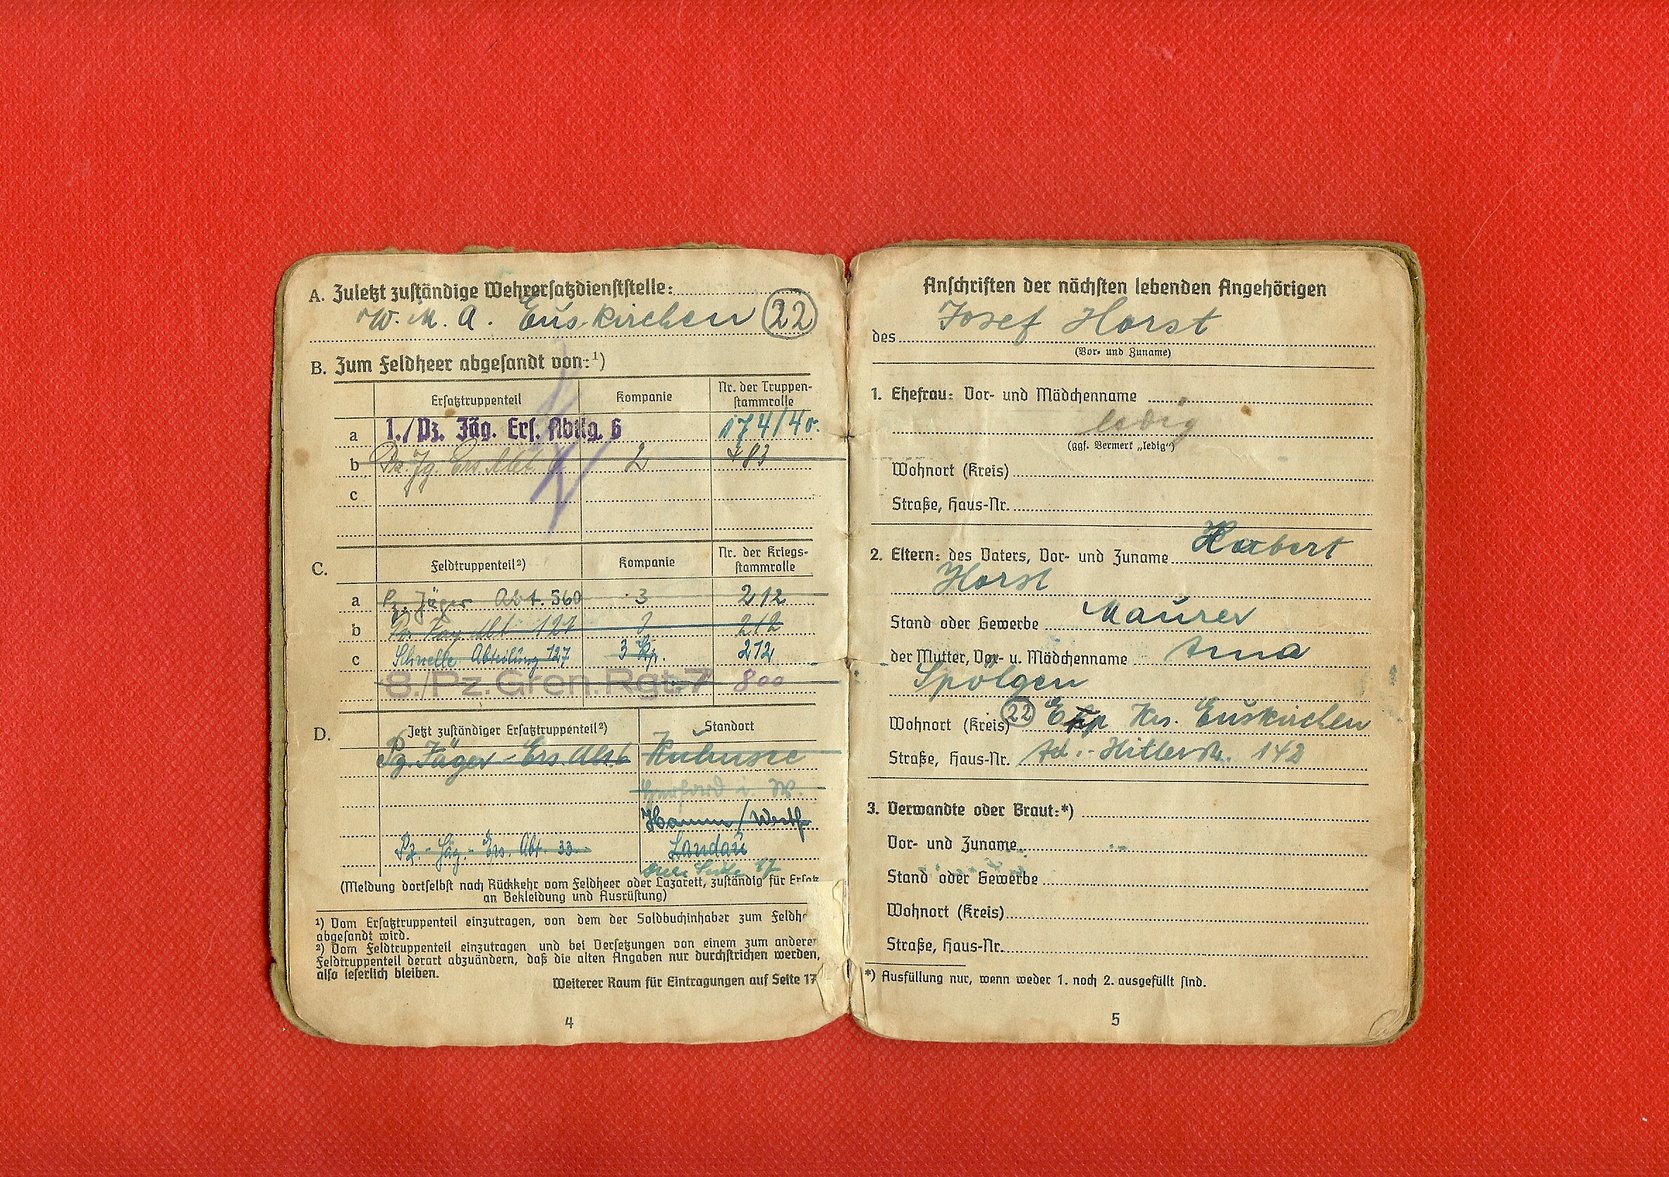 A. Zuletzt zuständige Wehrersatzdienststelle:
W. M. A. Euskirchen 22
B. Zum Feldheer abgesandt von:¹)
Ersatztruppenteil Kompanie Nr. der Truppen-
stammrolle
a 1./Pz. Jäg. Ers. Abtlg. 6 174/40.
b Pz. Jg. Ers. Abt. 2
c
C. Feldtruppenteil²) Kompanie Nr. der Kriegs-
stammrolle
a Pz. Jäger Abt. 560 3 212
b Abt. 127 212
c Schnelle Abteilung 127 3 Kp. 212
8./Pz. Gren. Rgt. 7 800
D. Jetzt zuständiger Ersatztruppenteil²) Standort
Pz. Jäger-Ers Abt. 6
Herford i. W.
Hamm/Westf
Pz.-Jäg.-Ers. Abt. 33 Landau
siehe Seite 17
(Meldung dortselbst nach Rückkehr vom Feldheer oder Lazarett, zuständig für Ersatz
an Bekleidung und Ausrüstung)
¹) Vom Ersatztruppenteil einzutragen, von dem der Soldbuchinhaber zum Feldh
abgesandt wird.
²) Vom Feldtruppenteil einzutragen und bei Versetzungen von einem zum anderen
Feldtruppenteil derart abzuändern, daß die alten Angaben nur durchstrichen werden,
also leserlich bleiben.
Weiterer Raum für Eintragungen auf Seite 17
4
Anschriften der nächsten lebenden Angehörigen
des Josef Horst
(Vor- und Zuname)
1. Ehefrau: Vor- und Mädchenname
ledig
(ggf. Vermerk „ledig“)
Wohnort (Kreis)
Straße, Haus-Nr.
2. Eltern: des Vaters, Vor- und Zuname Hubert
Horst
Stand oder Gewerbe Maurer
der Mutter, Vor- u. Mädchenname Anna
Spölgen
Wohnort (Kreis) 22 Krs. Euskirchen
Straße, Haus-Nr. Ad.-Hitlerstr. 142
3. Verwandte oder Braut:*)
Vor- und Zuname
Stand oder Gewerbe
Wohnort (Kreis)
Straße, Haus-Nr.
*) Ausfüllung nur, wenn weder 1. noch 2. ausgefüllt sind.
5